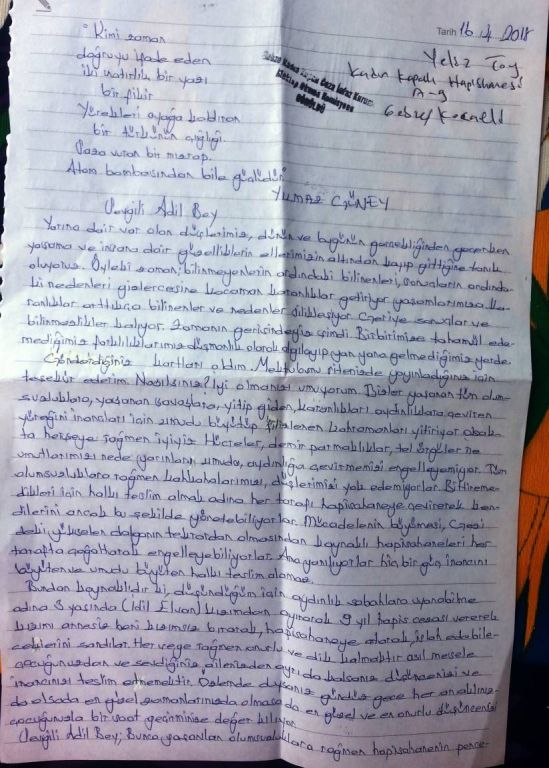 Tarih 16.4.2018
Yeliz Toy
Kadın Kapalı Hapishanesi
A-9
Gebze/Kocaeli
Gebze Kadın Kapalı Ceza İnfaz Kurumu
Mektup Okuma Komisyonu
GÖRÜLDÜ
" Kimi zaman
doğruyu ifade eden
iki satırlık bir yazı
bir şiir
Yürekleri ayağa kaldıran
bir türkünün ezgiliği
Saza vuran bir mızrap.
Atom bombasından bile güçlüdür
YILMAZ GÜNEY
Sevgili Adil Bey
Yarına dair var olan düşlerimiz, dünün ve bugünün gerçekliğinden geçerken
yaşama ve insana dair güzelliklerin ellerimizin altından kayıp gittiğine tanık
oluyoruz. Öyleki zaman; bilinmeyenlerin ardındaki bilinenleri, sonuçların ardında-
ki nedenleri gizlercesine kocaman karanlıklar getiriyor yaşamlarımıza. Ka-
ranlıklar arttıkça bilinenler ve nedenler silikleşiyor. Geriye sonuçlar ve
bilinmezlikler kalıyor. Zamanın gerisindeyiz şimdi. Birbirimize tahamül ede-
mediğimiz farklılıklarımızı düşmanlık olarak algılayıp yan yana gelmediğimiz yerde.
Gönderdiğiniz kartları aldım. Mektubumu sitenizde yayınladığınız için
teşekür ederim. Nasılsınız? İyi olmanızı umuyorum. Bizler yaşanan tüm olum-
suzluklara, yaşanan savaşlara, yitip giden, karanlıkları aydınlıklara çeviren
yüreğini inançları için umudu büyütüp kahramanları yitiriyor olsak-
ta herşeye rağmen iyiyiz. Hücreler, demir parmaklıklar, tel örgüler ne
umutlarımızı nede yarınların umuda, aydınlığa çevirmemizi engelleyemiyor. Tüm
olumsuzluklara rağmen kahkahalarımızı, düşlerimizi yok edemiyorlar. Bitireme-
dikleri için halkı teslim almak adına her tarafı hapishaneye çevirerek ken-
dilerini ancak bu şekilde yönetebiliyorlar. Mücadelenin büyümesi, Gezi
deki yükselen dalganın tekrardan olmasından kaynaklı hapishaneleri her
tarafta çoğaltarak engelleyebiliyorlar. Ama yanılıyorlar hiç bir güç inancını
büyüten ve umudu büyüten halkı teslim alamaz.
Bundan kaynaklıdır ki, düşündüğüm için aydınlık sabahlara uyanabilme
adına 3 yaşında (İdil Elvan) kızımdan ayırarak 9 yıl hapis cezası vererek
kızımı annesiz beni kızımsız bırakarak, hapishaneye atarak, ıslah edebile-
ceklerini sandılar. Her şeye rağmen onurlu ve dik kalmaktır asıl mesele
çocuğunuzdan ve sevdiğiniz ailenizden ayrı da kalsanız düşüncenizi ve
inancınızı teslim etmemektir. Özlemde duysanız gündüz gece her anakınız
da olsada en güzel zamanlarınızda olmasada en güzel ve en onurlu düşüncenizi
çocuğunuzla bir saat geçirmenize değer biliyor.
Sevgili Adil Bey; Bunca yaşanılan olumsuzluklara rağmen hapishanenin pence-